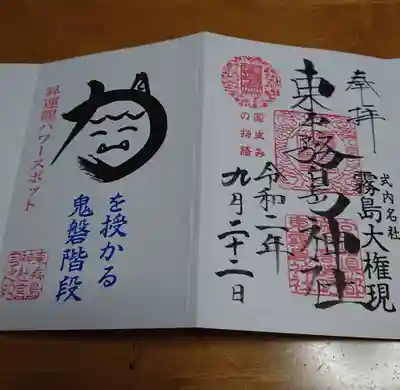 奉拝
式内名社
霧島大権現
東霧島神社
国生み
の物語
令和二年
九月二十二日
を授かる
鬼磐階段
昇運龍パワースポット